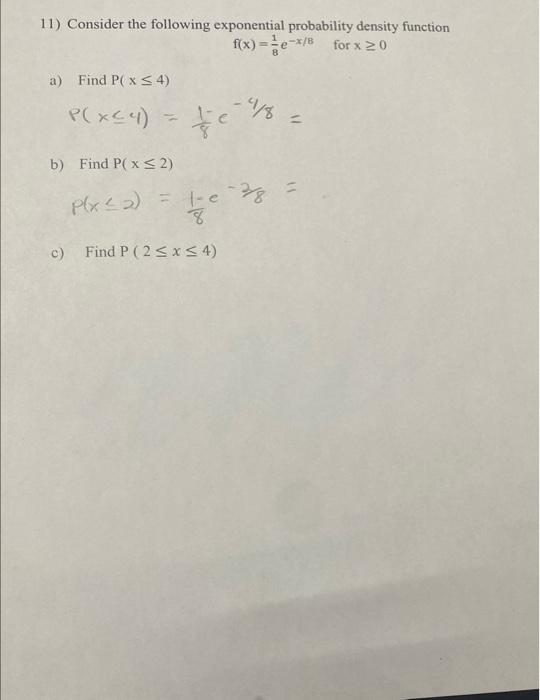 11) Consider the following exponential probability density function
f(x) = 1/8 e^(-x/8) for x ≥ 0
a) Find P( x ≤ 4)
P(x≤4) = 1-/8 e^(-4/8) =
b) Find P( x ≤ 2)
P(x≤2) = 1-/8 e^(-2/8) =
c) Find P ( 2 ≤ x ≤ 4)